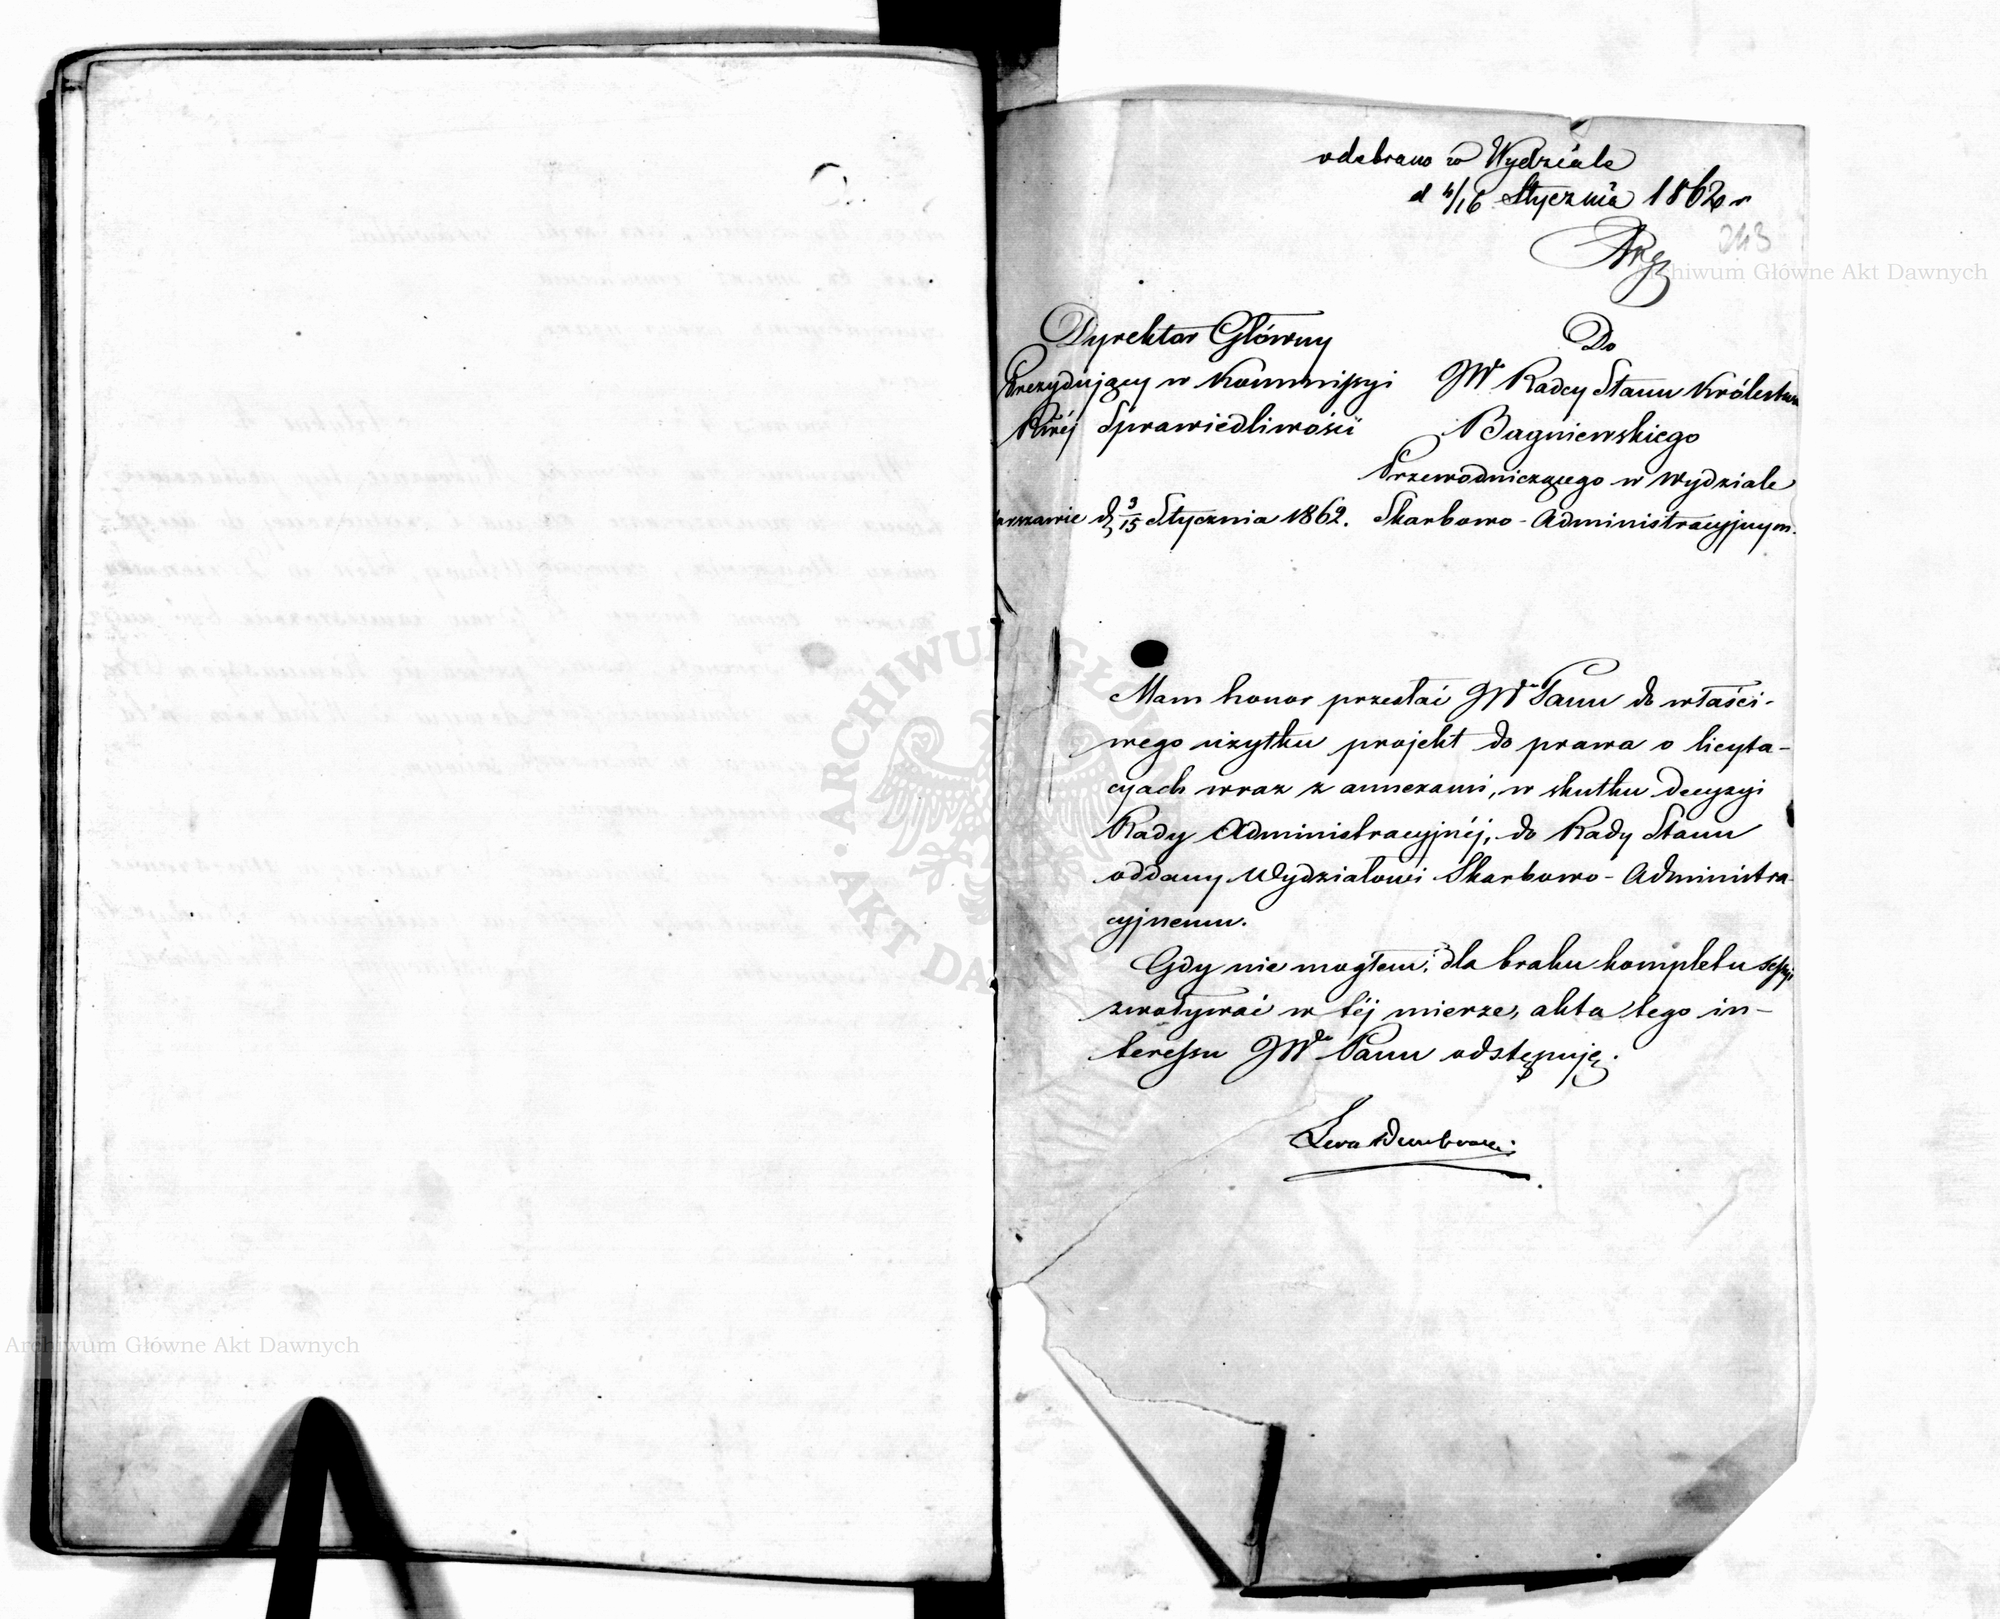 odebrano w Wydziale
d 4/16 Stycznia 1862 r
243
Dyrektor Główny
Prezydujący w Kommissyi
Rwéj Sprawiedliwości
w Warszawie d. 3/15 Stycznia 1862.
Do
JWo Radcy Stanu Królestwa
Bagniewskiego
Przewodniczącego w Wydziale
Skarbowo-Administracyjnym.
Mam honor przesłać JWu Panu do właści-
wego użytku projekt do prawa o licyta-
cyach wraz z annexami, w skutku decyzyi
Rady Administracyjnéj, do Rady Stanu
oddany Wydziałowi Skarbowo-Administra-
cyjnemu.
Gdy nie mogłem, dla braku kompletu sessyi
zwoływać w téj mierze, akta tego in-
teressu JWu Panu odstępuję.
Archiwum Główne Akt Dawnych
ARCHIWUM GŁÓWNE AKT DAWNYCH
Archiwum Główne Akt Dawnych